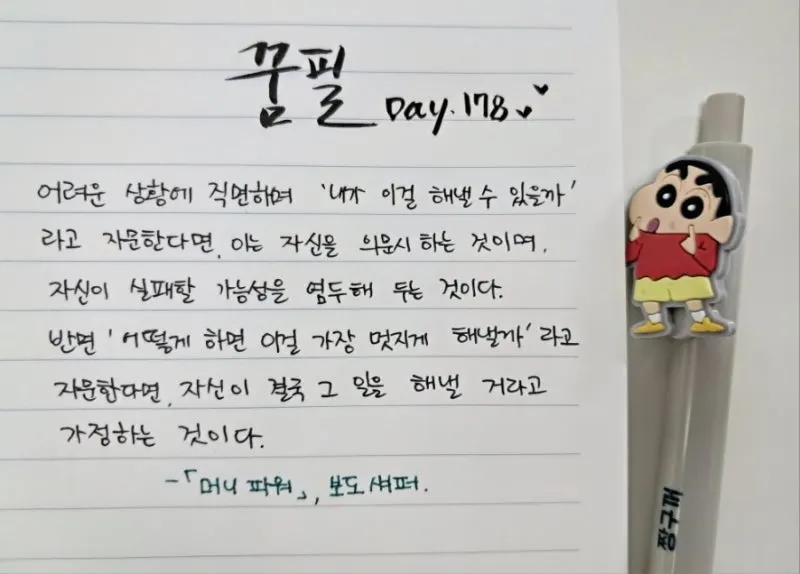 꿈필 Day.178
어려운 상황에 직면하며 '내가 이걸 해낼 수 있을까'
라고 자문한다면, 이는 자신을 의문시 하는 것이며,
자신이 실패할 가능성을 염두해 두는 것이다.
반면 '어떻게 하면 이걸 가장 멋지게 해낼까' 라고
자문한다면, 자신이 결국 그 일을 해낼 거라고
가정하는 것이다.
-「머니 파워」, 보도 섀퍼.
훈구짱